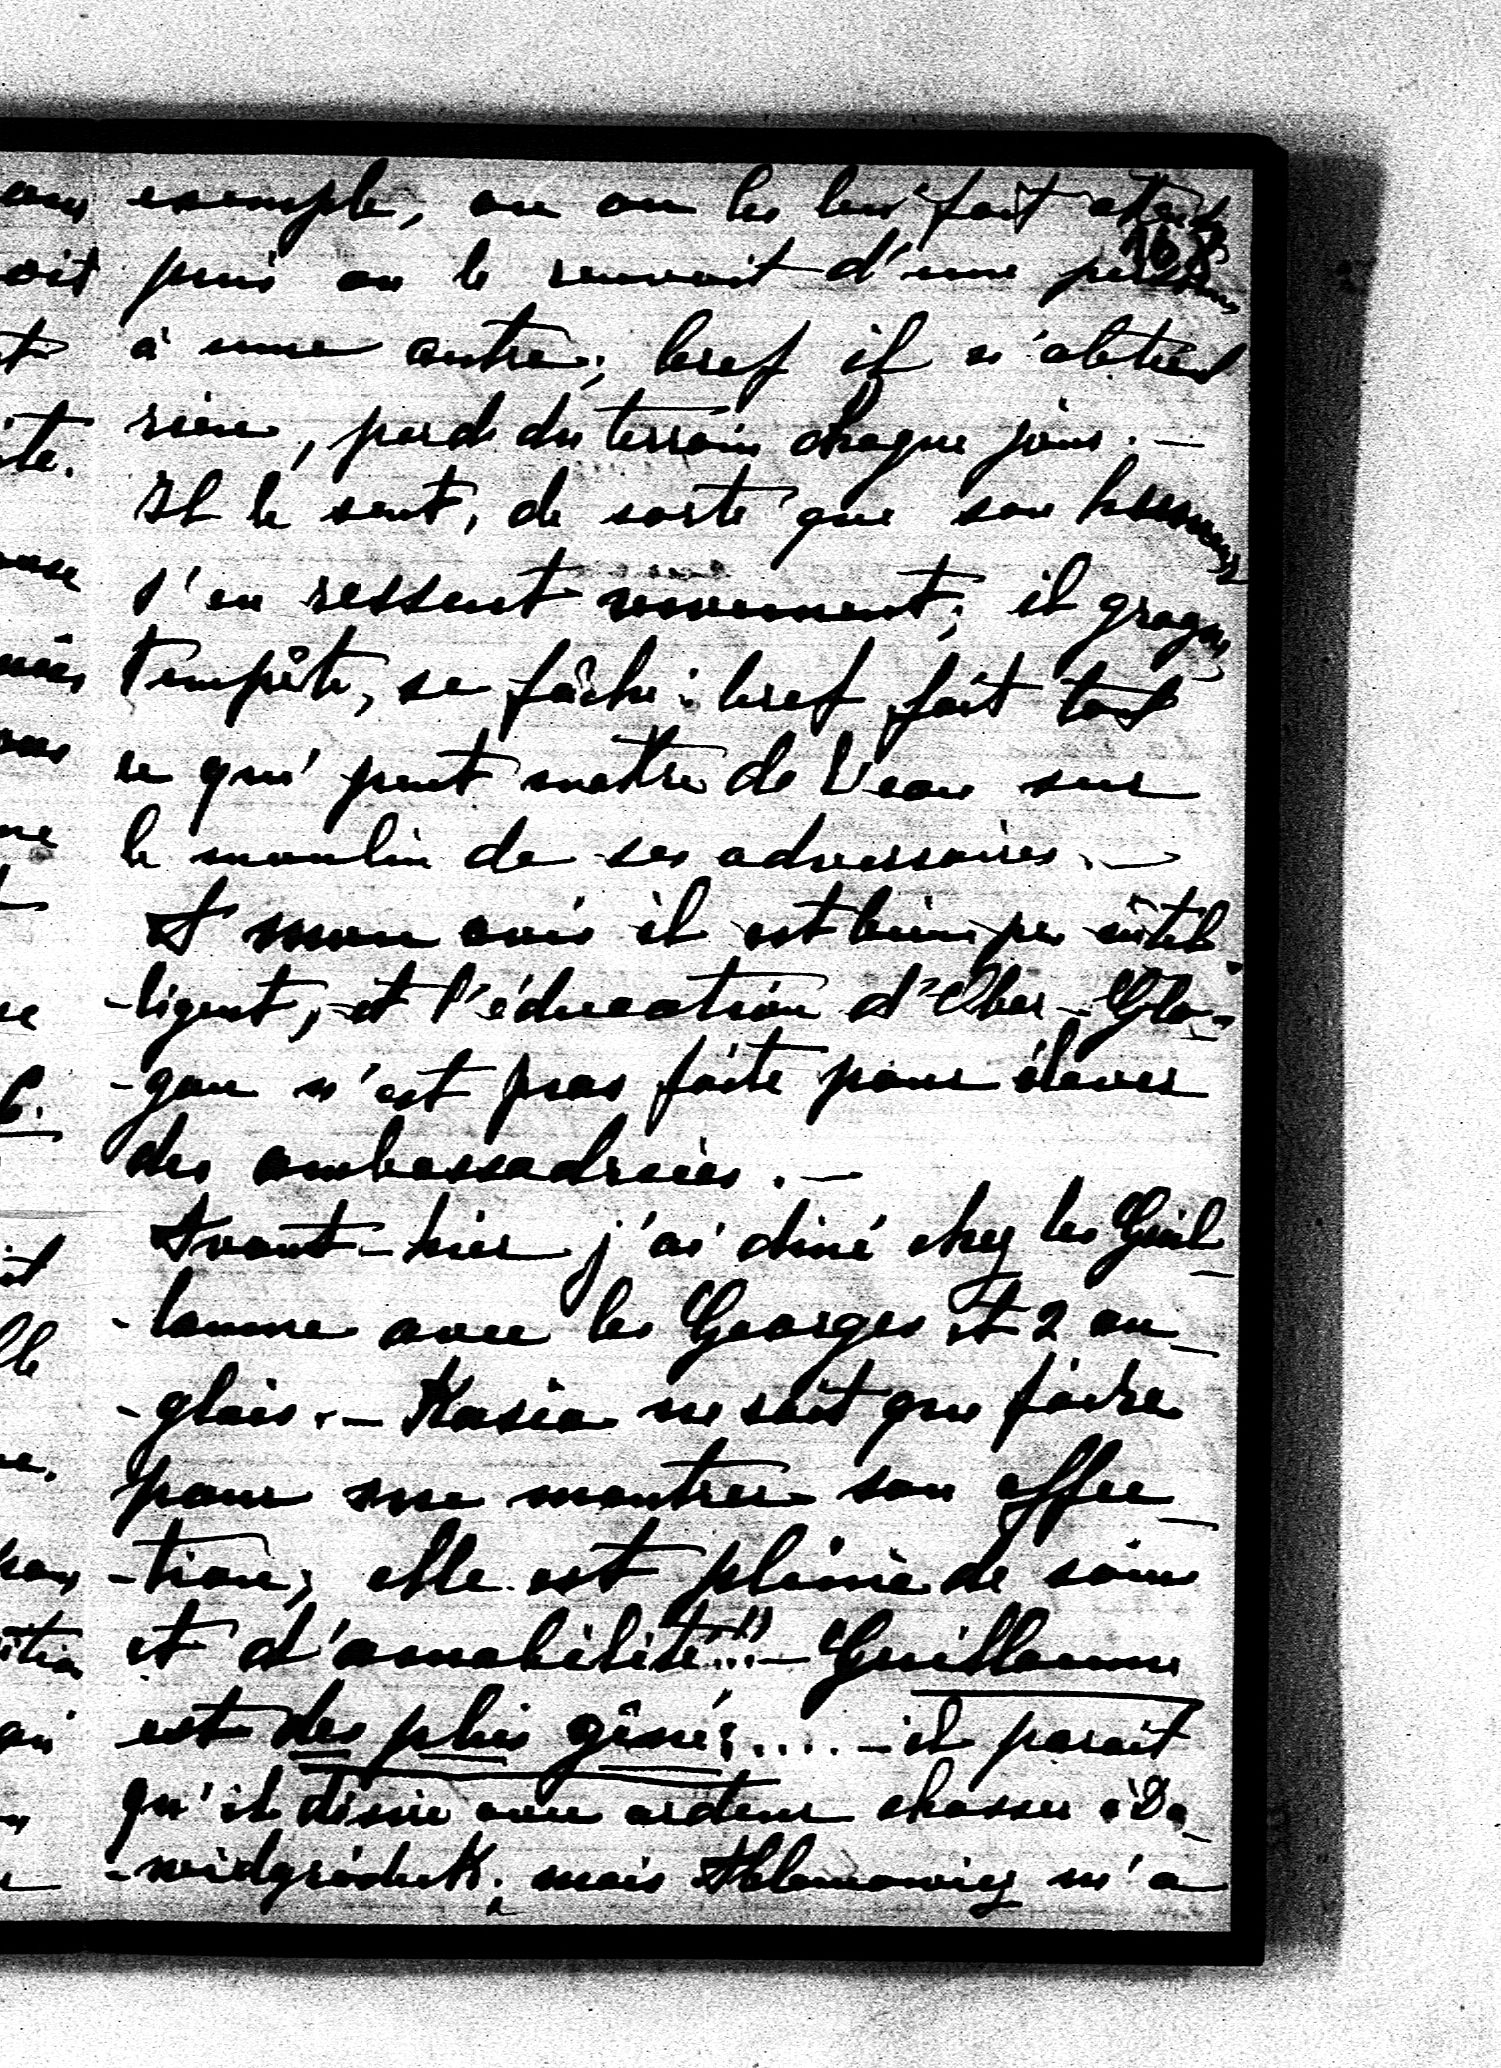 exemple, ou on les leur fait attend
168
puis on le renvoit d'une personne
à une autre; bref il n'obtient
rien, perd du terrain chaque jour. —
Il le sent, de sorte que son humeur
s'en ressent vivement; il grogne
tempête, se fâche: bref fait tout
ce qui peut mettre de l'eau sur
le moulin de ses adversaires. —
A mon avis il est bien peu intel
-ligent, et l'éducation d'Ober-Glo-
-gau n'est pas faite pour élever
des ambassadrices. —
Avant-hier j'ai diné chez les Guil-
-laume avec les Georges et 2 an-
-glais. — Kasia ne sait que faire
pour me montrer son affec-
-tion; elle est pleine de soins
et d'amabilité!!!... — Guillaume
est des plus gêné; .... — il parait
qu'il désire avec ardeur chasser à Da-
-widgródek; mais Ablamowicz m'a